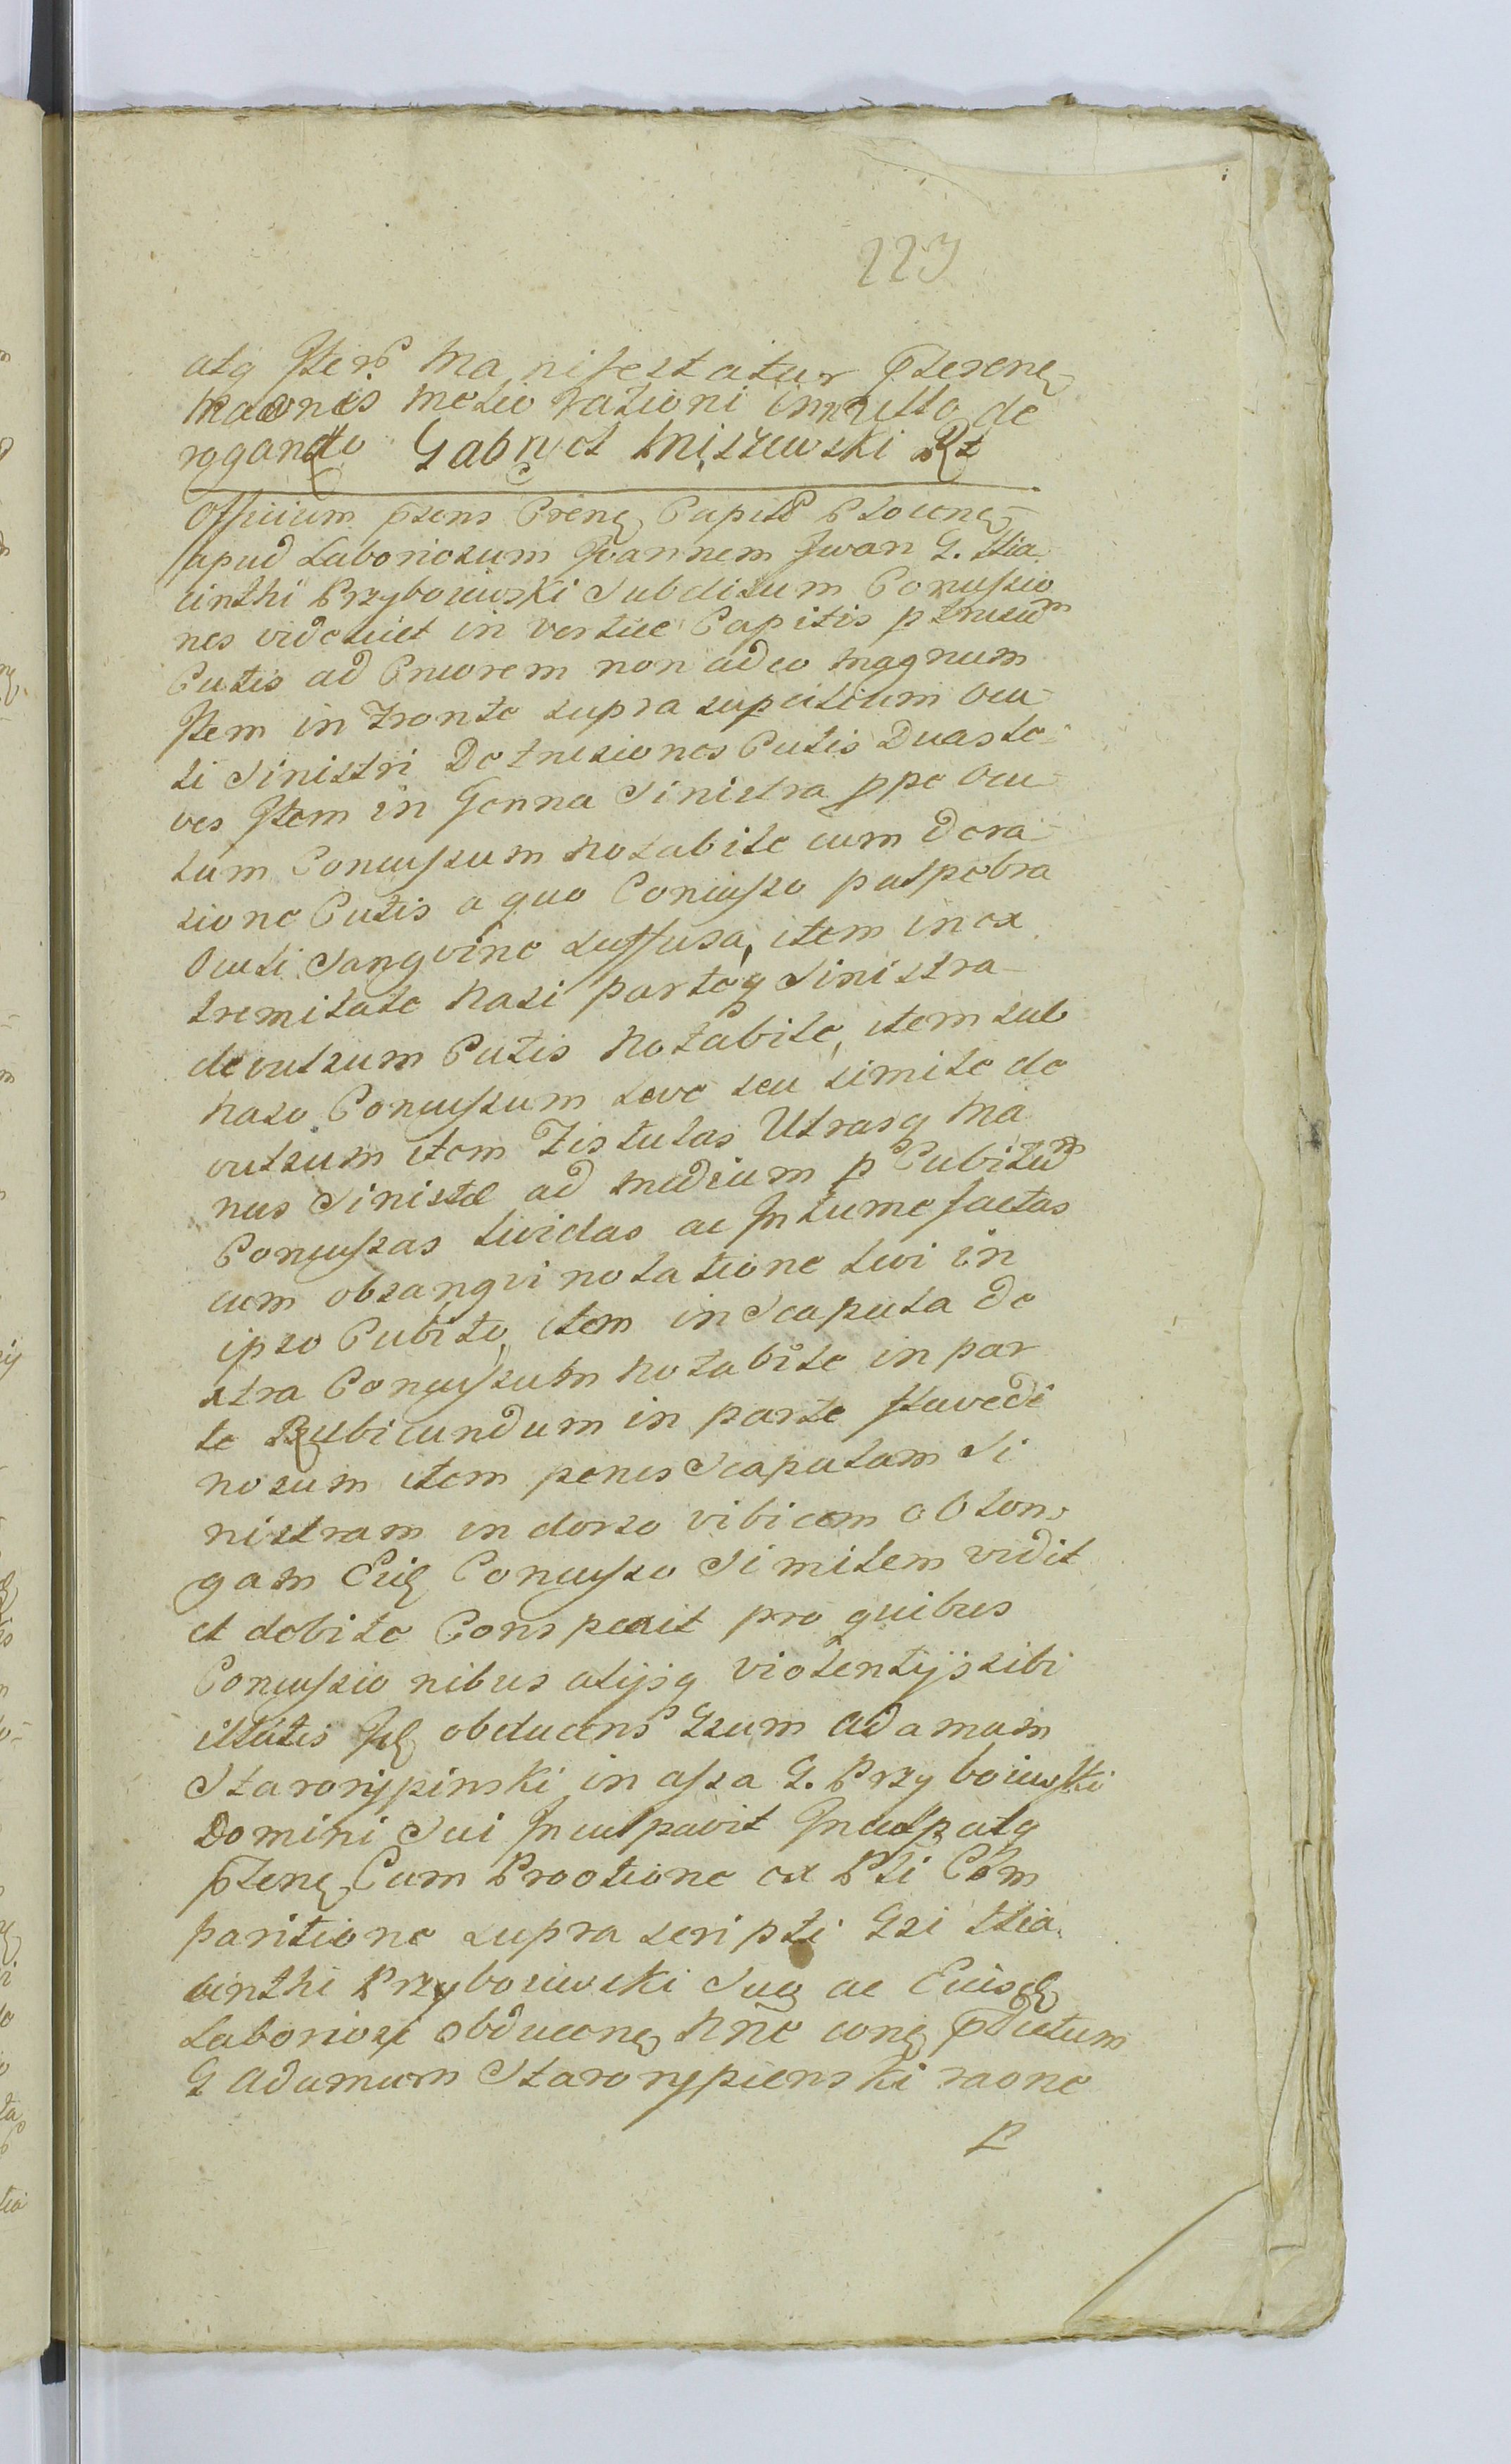 223
atq Iterũ Manifestatur pterene
maonis melio rationi in nullo de
rogando Gabriel Mniszewski
Officium psens Crene Capitł Płocene
apud Laboriosum Joannem Jwan G. Hia
cinthi Przyborowski Subditum Concussio
nes videlicet in vertice Capitis ptrusum
Cutis ad Cruorem non adeo magnum
Item in Fronte supra supercilium Ocu
li Sinistri Detrusiones Cutis Duas le
ves Item in Genna Sinistra ppe Ocu
lum Concussum notabile cum dera
sione Cutis a quo Concusso palpebra
Oculi Sangvine suffusa, item in ex
tremitate Nasi parteq Sinistra
devulsum Cutis notabile, item sub
naso Concussum leve seu simile de
vulsum item Fistulas Utrasq Ma
nus Sinistræ ad medium p Cubitum
Concussas lividas ac Intumefactas
cum obsangvinolatione levi in
ipso Cubito, item in Scapula de
xtra Concussum notabile in par
te Rubicundum in parte flavedi
nosum item penes Scapulam Si
nistram in dorso vibicem oblon
gam Concusso Similem vidit
et debite Conspexit pro quibus
Concussionibus alijsq violentijs sibi
illatis obducens Gsum Adamum
Starorypinski in assa G. Przyborowski
Domini Sui Inculpavit Inculpatq
ptene Cum Protione ex Pti Com
paritione supra scripti Gsi Hia
cinthi Przyborowski Sua ac
Laboriosi obducene Nne cone pdictum
G Adamum Starorypienski raone